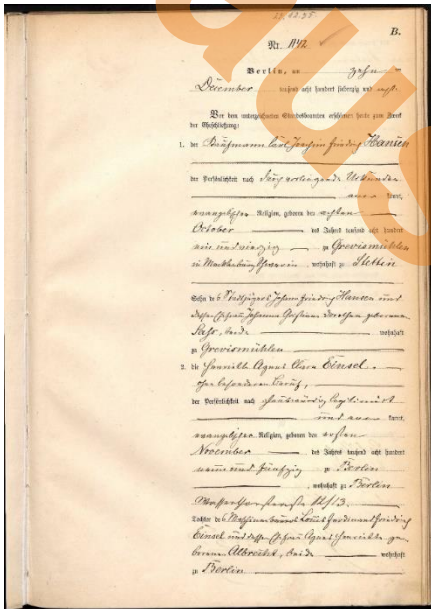 B.
Nr. 1142
Berlin, am zehn
December tausend acht hundert siebenzig und acht.
Vor dem unterzeichneten Standesbeamten erschienen heute zum Zweck
der Eheschließung:
1. der Kaufmann Carl Joachim Friedrich Hansen
der Persönlichkeit nach durch vorliegende Urkunden
aner kannt,
evangelischer Religion, geboren den achten
October des Jahres tausend acht hundert
ein und vierzig zu Grevismühlen
in Mecklenburg Schwerin, wohnhaft zu Stettin
Sohn des Stadtjägers Johann Friedrich Hansen und
dessen Ehefrau Johanna Dorothea geborenen
Saß, beide wohnhaft
zu Grevismühlen
2. die Henriette Agnes Clara Einsel,
ohne besonderen Beruf,
der Persönlichkeit nach glaubwürdig legitimirt
und aner kannt,
evangelischer Religion, geboren den ersten
November des Jahres tausend acht hundert
neun und fünfzig zu Berlin
, wohnhaft zu Berlin
Wasserthorstraße 12/13.
Tochter des Louis Ferdinand Friedrich
Einsel und dessen Ehefrau Agnes Henriette ge
borenen Albrecht, beide wohnhaft
zu Berlin